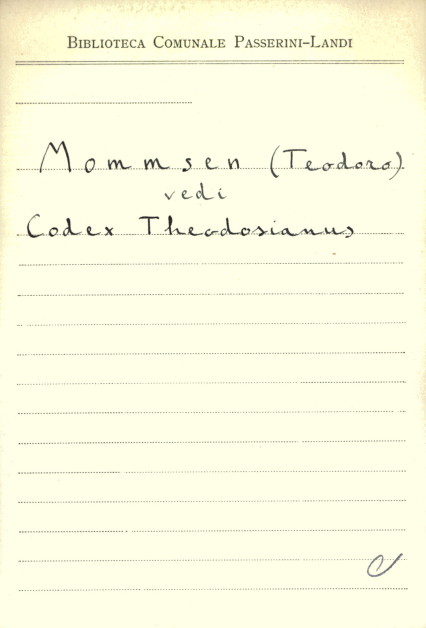 BIBLIOTECA COMUNALE PASSERINI-LANDI
Mommsen (Teodoro)
vedi
Codex Theodosianus